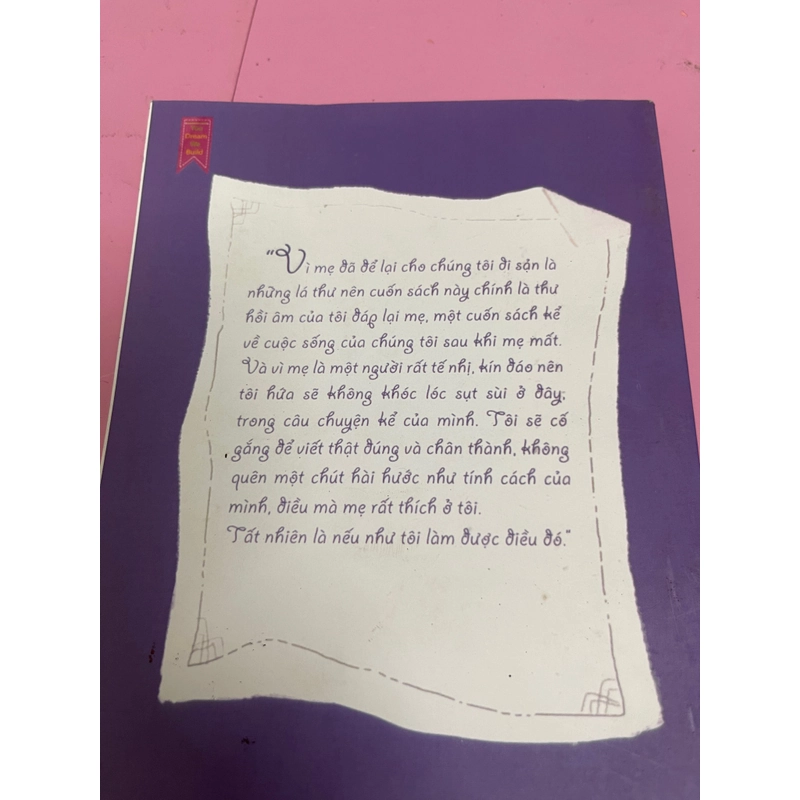 You
Dream,
We
Build
"Vì mẹ đã để lại cho chúng tôi di sản là
những lá thư nên cuốn sách này chính là thư
hồi âm của tôi đáp lại mẹ, một cuốn sách kể
về cuộc sống của chúng tôi sau khi mẹ mất.
Và vì mẹ là một người rất tế nhị, kín đáo nên
tôi hứa sẽ không khóc lóc sụt sùi ở đây,
trong câu chuyện kể của mình. Tôi sẽ cố
gắng để viết thật đúng và chân thành, không
quên một chút hài hước như tính cách của
mình, điều mà mẹ rất thích ở tôi.
Tất nhiên là nếu như tôi làm được điều đó."